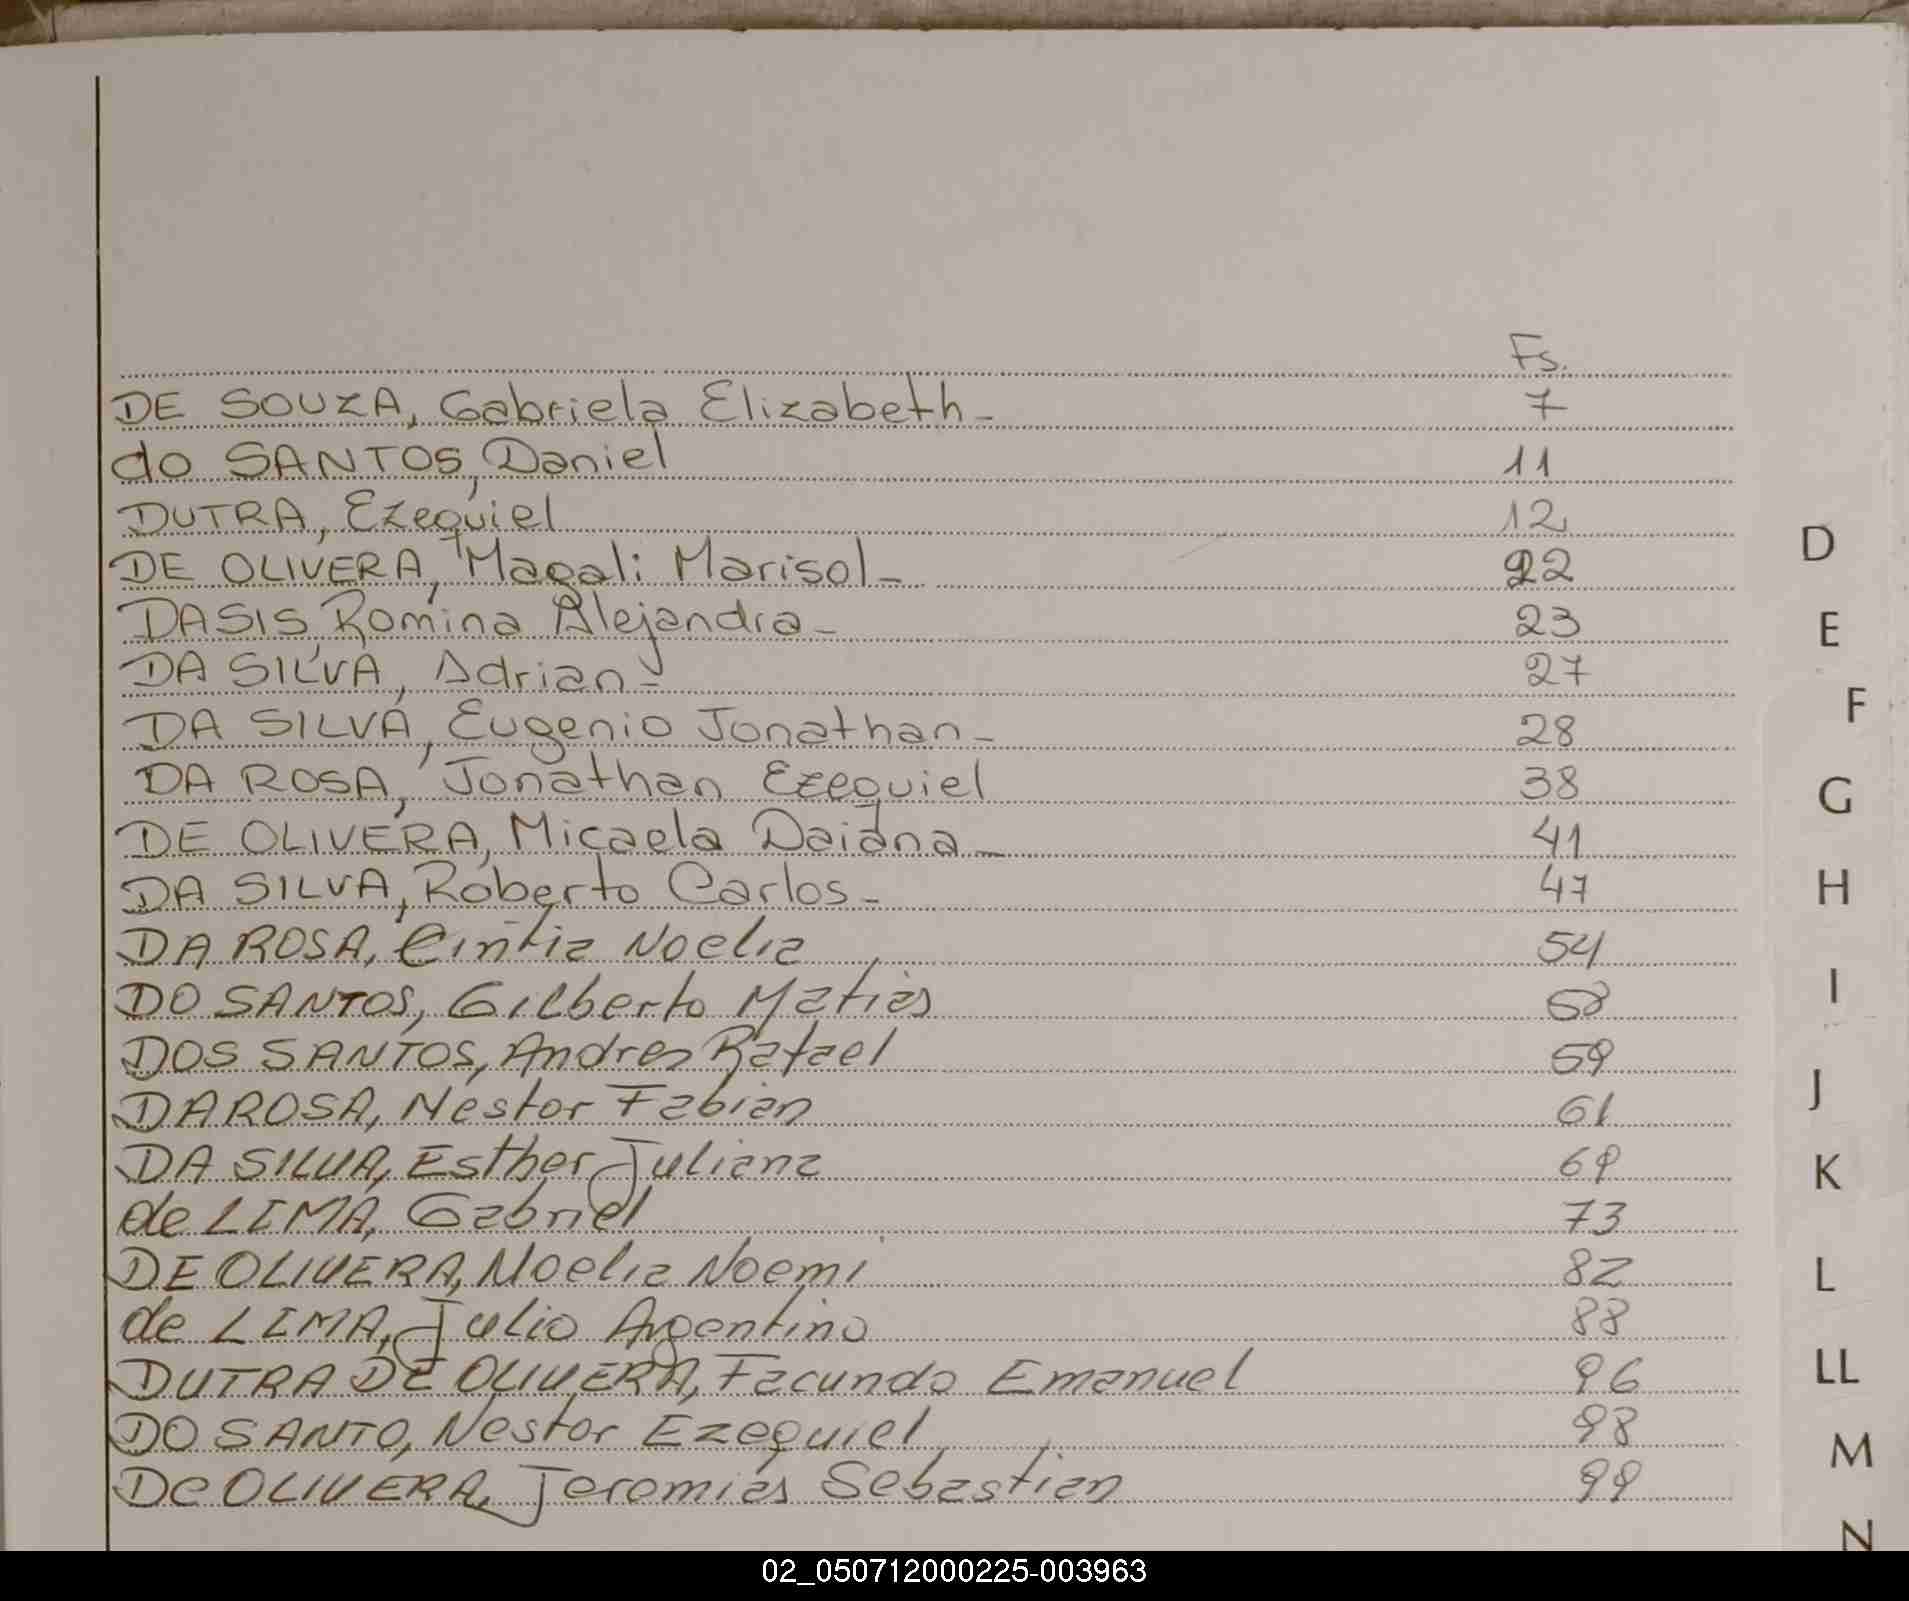 Fs.
DE SOUZA, Gabriela Elizabeth- 7
do SANTOS, Daniel 11
DUTRA, Ezequiel 12
DE OLIVERA, Magali Marisol- 22
DASIS, Romina Alejandra- 23
DA SILVA, Adrian- 27
DA SILVA, Eugenio Jonathan- 28
DA ROSA, Jonathan Ezequiel 38
DE OLIVERA, Micaela Daiana- 41
DA SILVA, Roberto Carlos- 47
DA ROSA, Cintia Noelia 54
DO SANTOS, Gilberto Matias 58
DOS SANTOS, Andres Rafael 59
DA ROSA, Nestor Fabian 61
DA SILVA, Esther Juliana 69
de LIMA, Gabriel 73
DE OLIVERA, Noelia Noemi 82
de LIMA, Julio Argentino 88
DUTRA DE OLIVERA, Facundo Emanuel 96
DO SANTO, Nestor Ezequiel 98
De OLIVERA, Jeremias Sebastian 99
D
E
F
G
H
I
J
K
L
LL
M
N
02_050712000225-003963